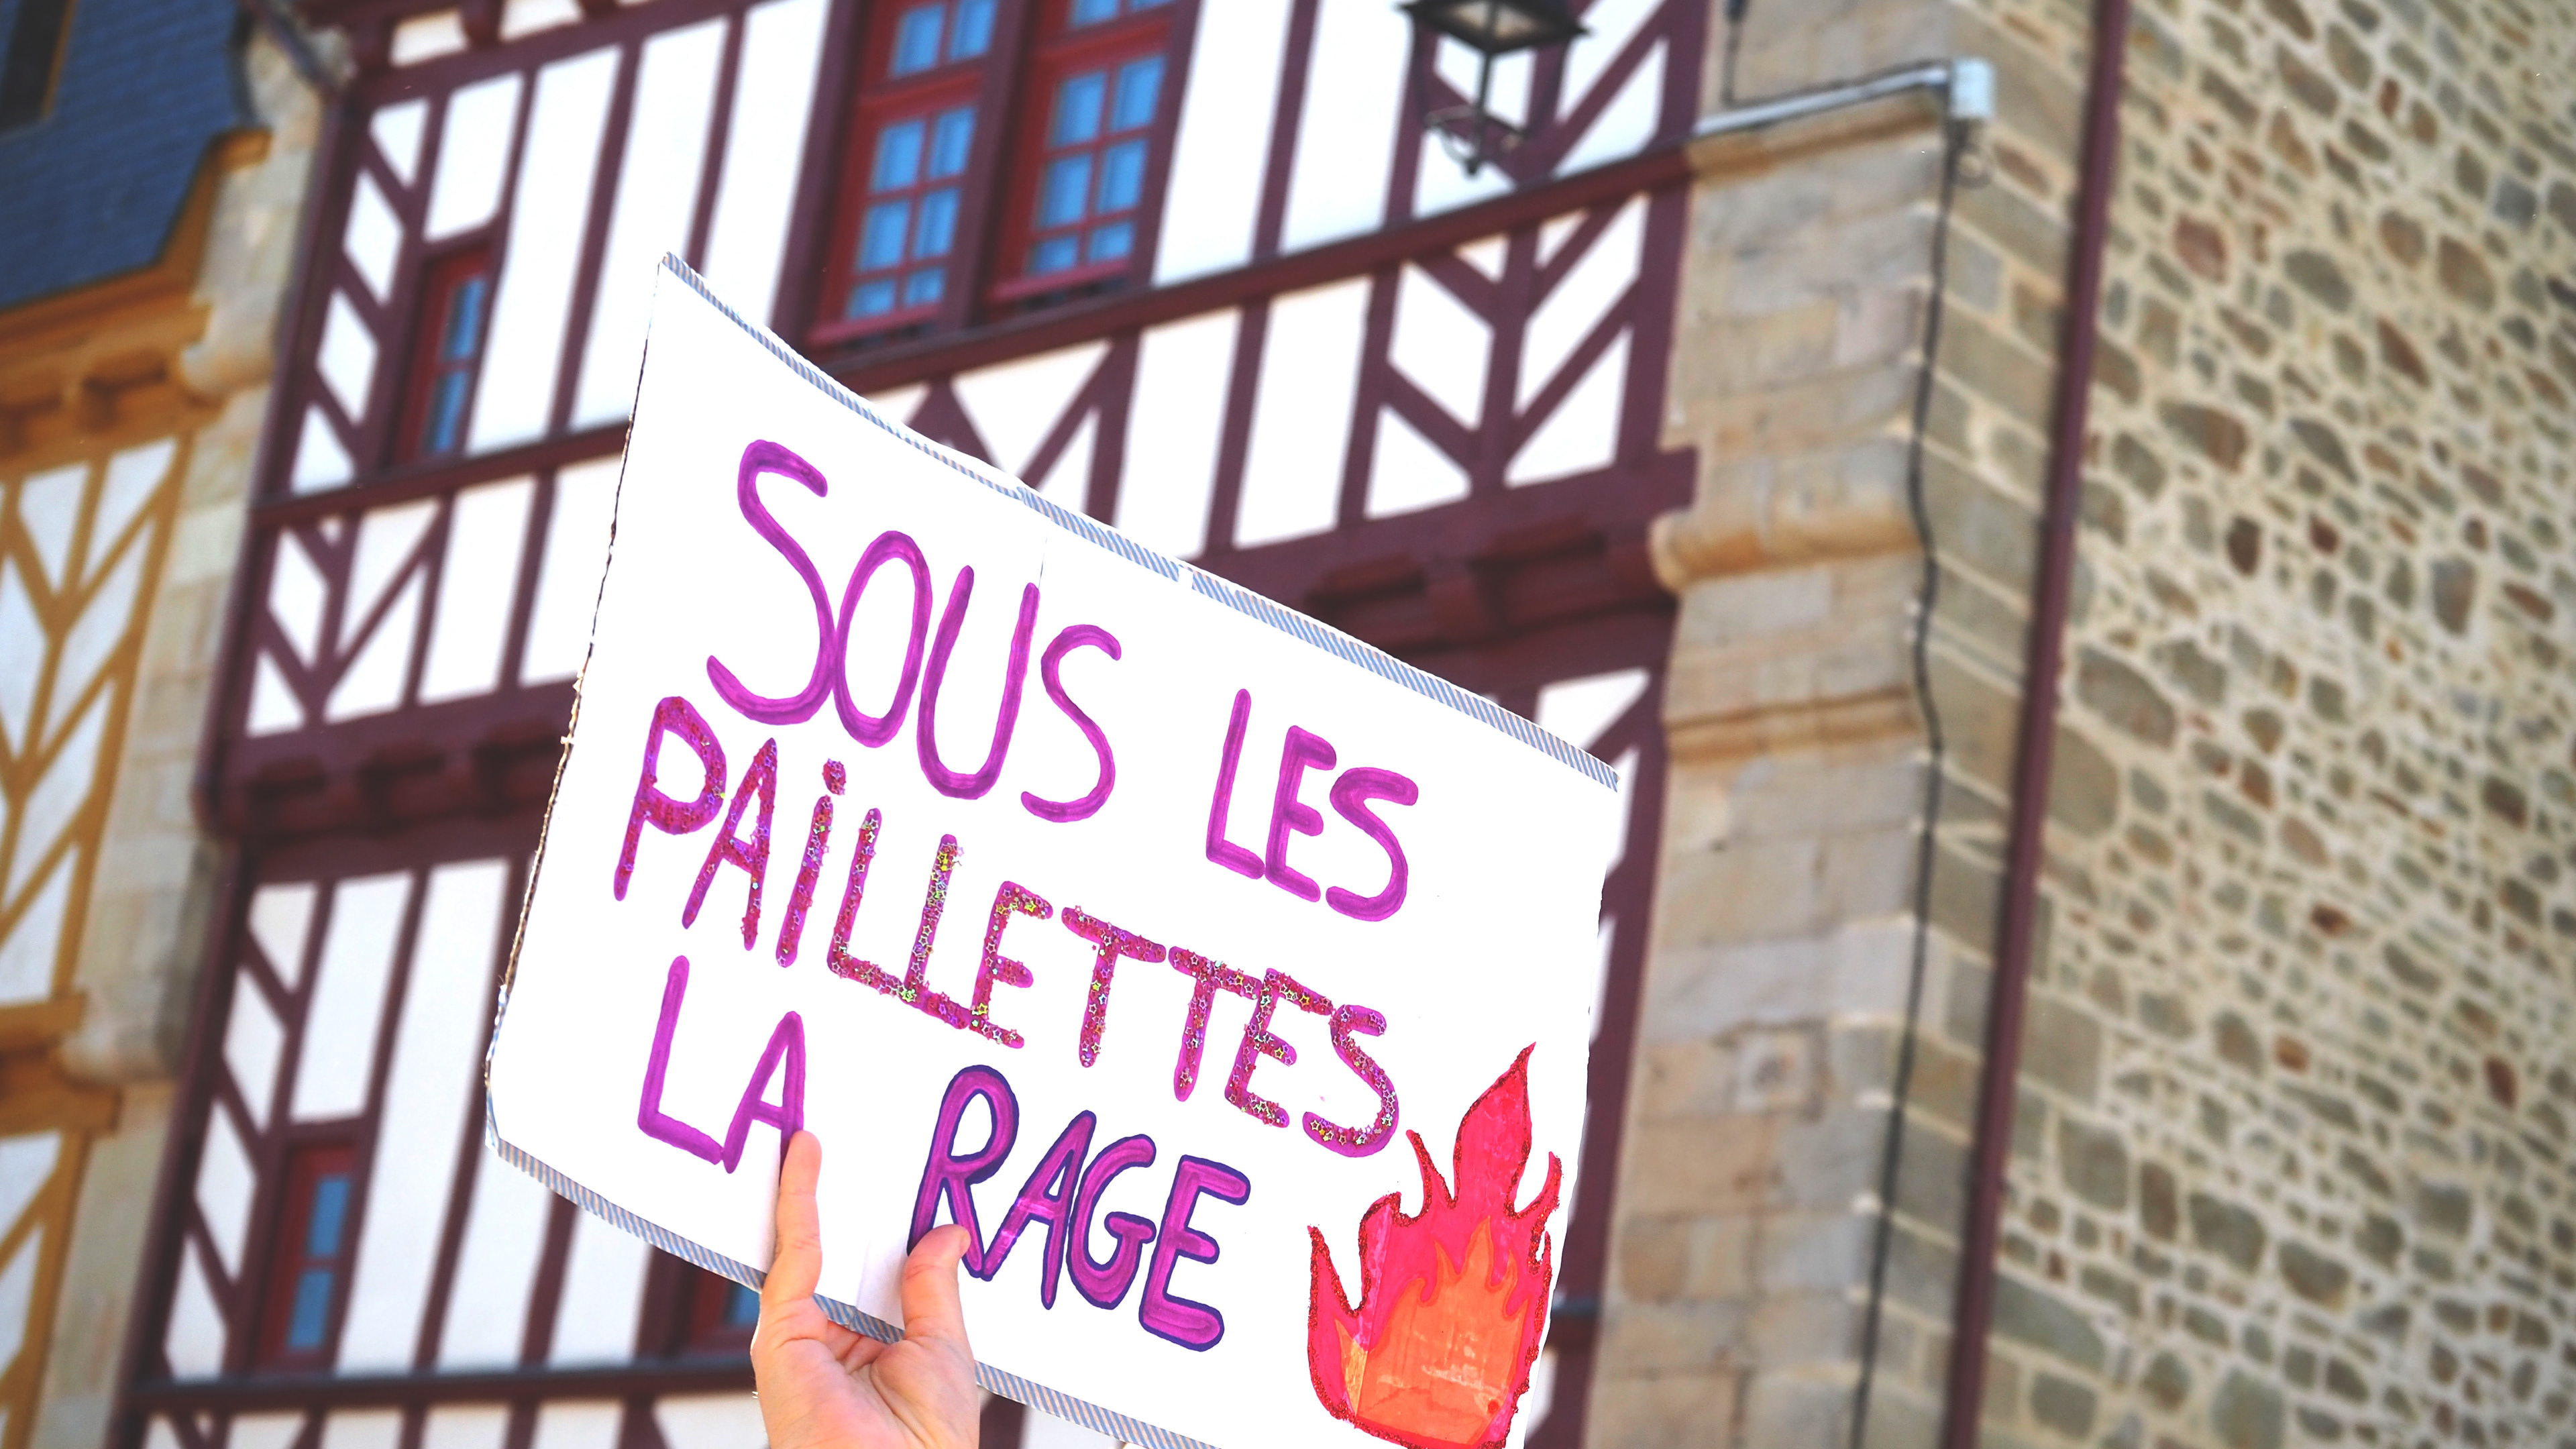 SOUS LES
PAiLLETTES
LA RAGE